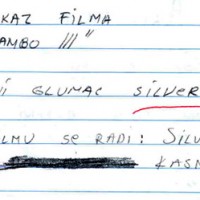 KAZ FILMA
AMBO III"
I GLUMAC SILVER
LMU SE RADI: SILV
KASN